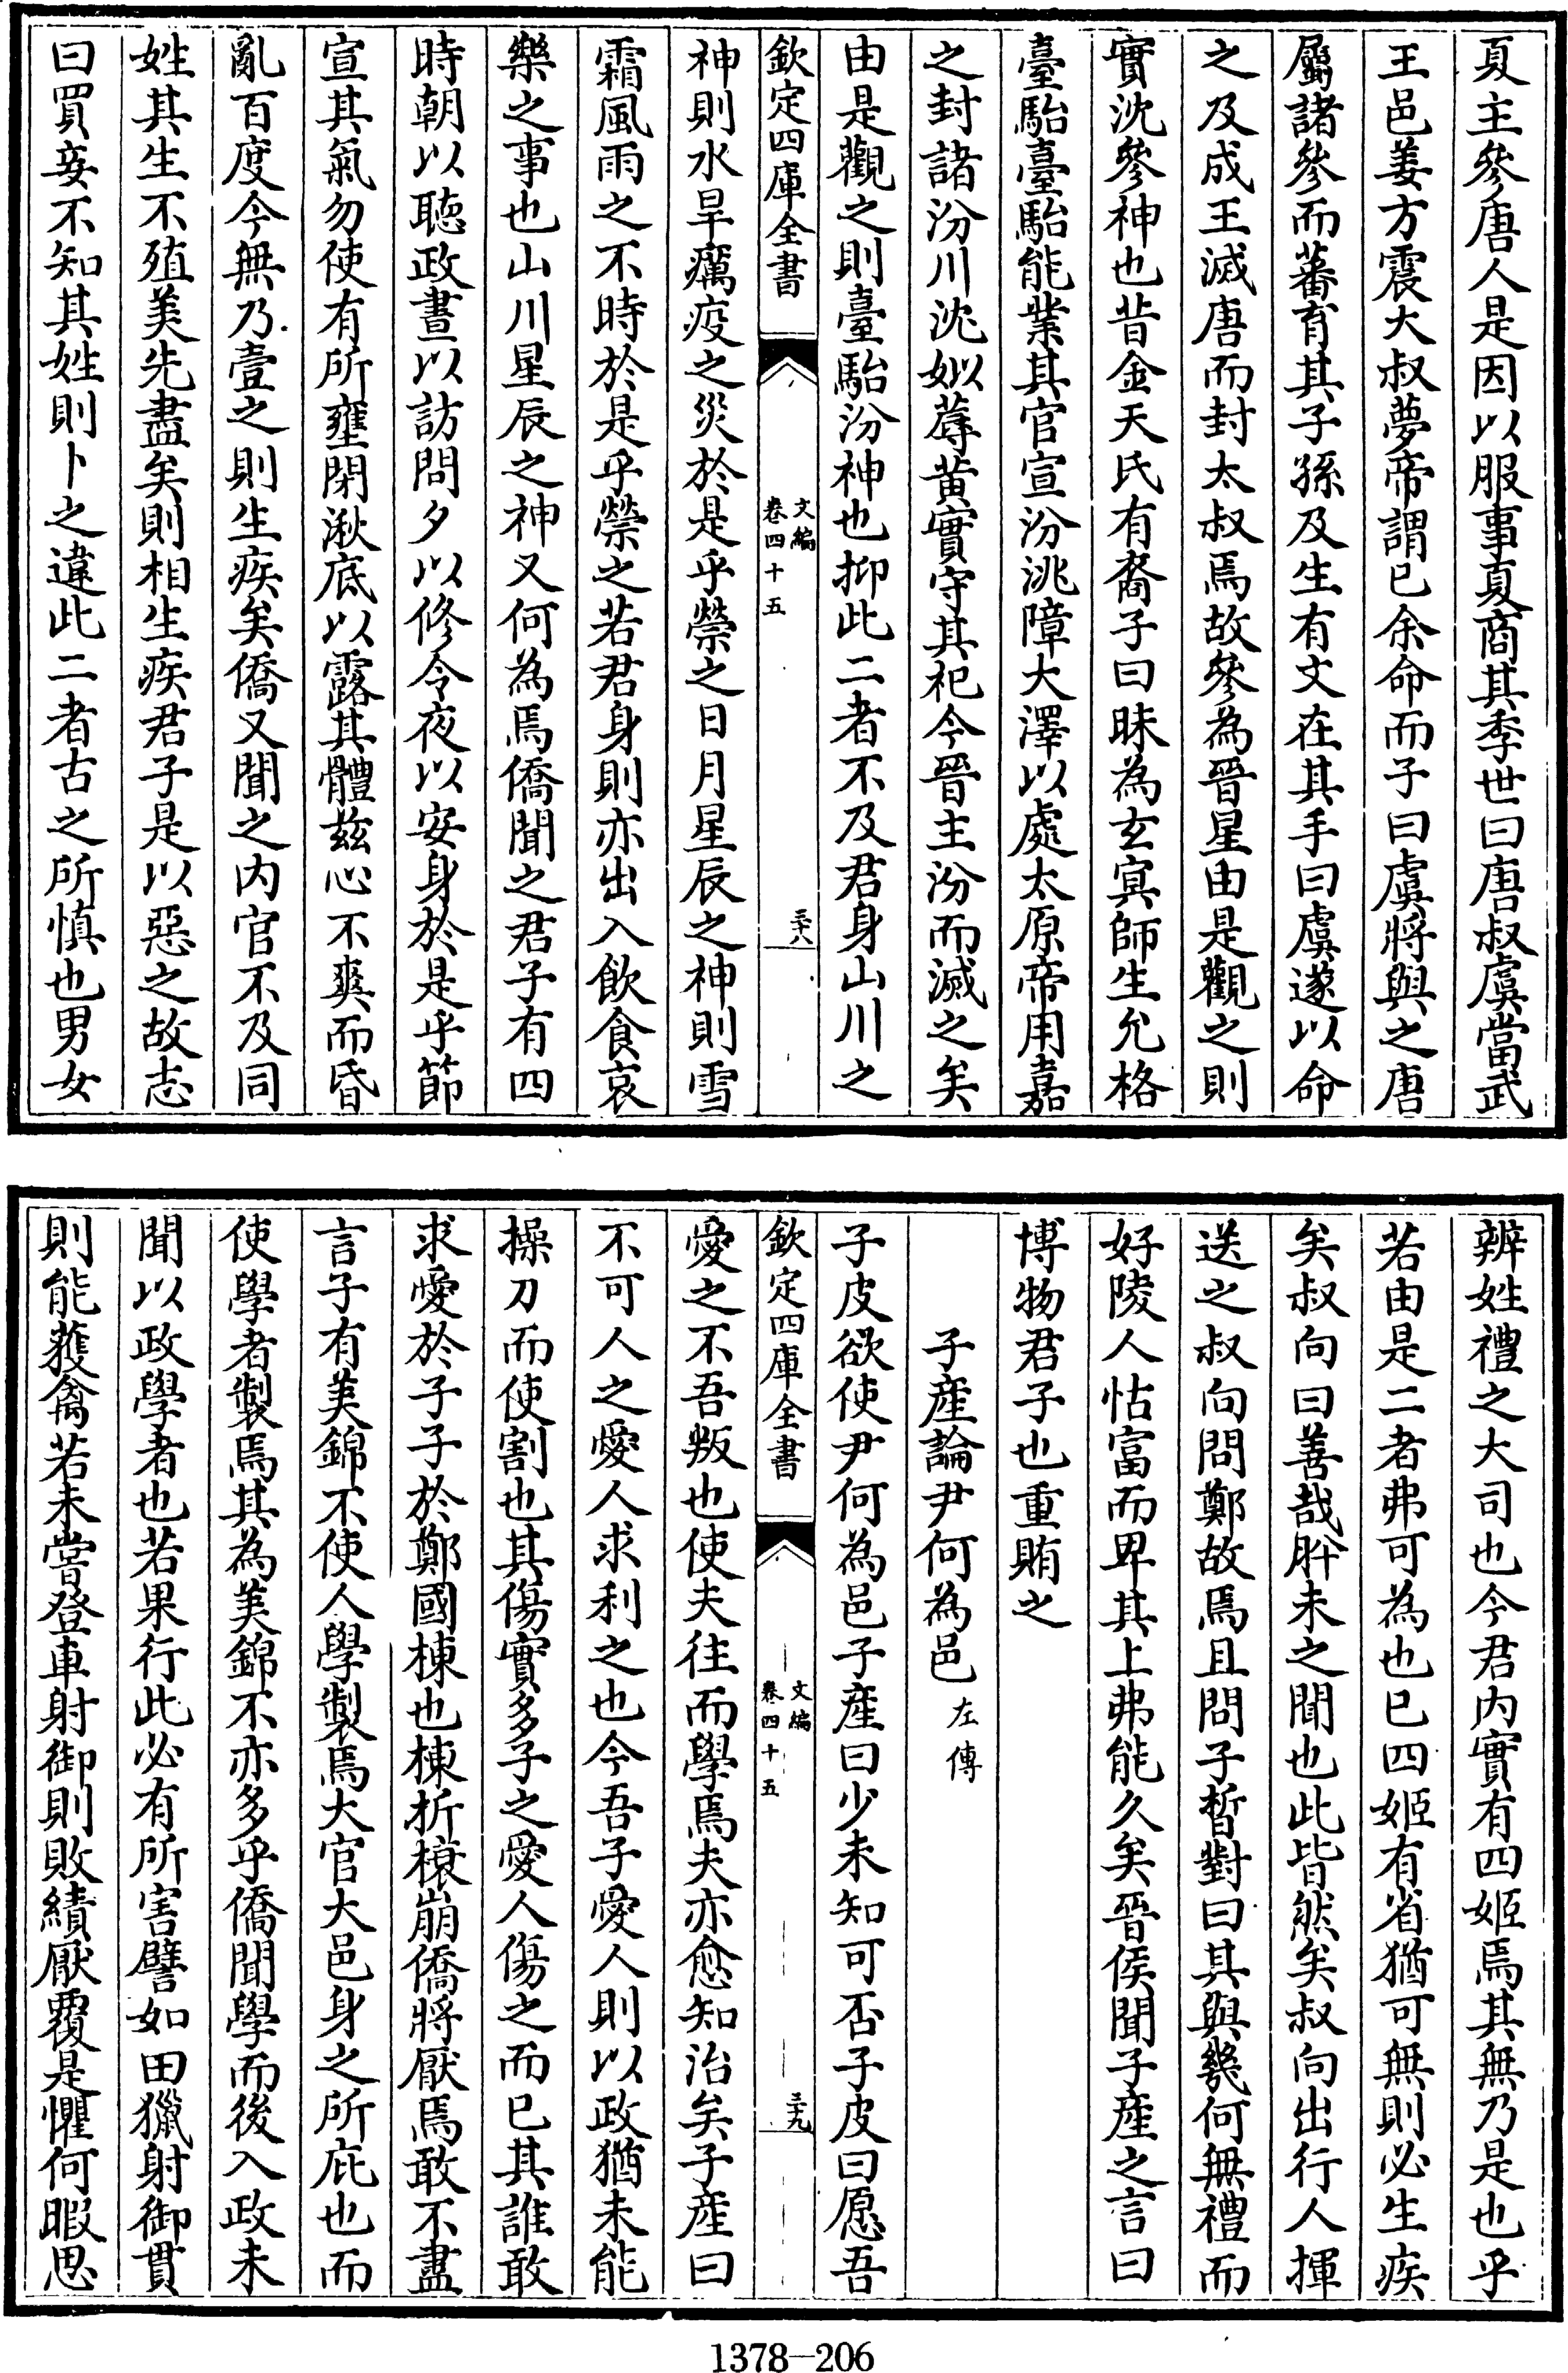 夏主參唐人是因以服事夏商其季世曰唐叔虞當武
王邑姜方震大叔夢帝謂已余命而子曰虞將與之唐
屬諸參而蕃育其子孫及生有文在其手曰虞遂以命
之及成王滅唐而封太叔焉故參為晉星由是觀之則
實沈參神也昔金天氏有裔子曰昧為玄冥師生允格
臺駘臺駘能業其官宣汾洮障大澤以處太原帝用嘉
之封諸汾川沈姒蓐黄實守其祀今晉主汾而滅之矣
由是觀之則臺駘汾神也抑此二者不及君身山川之
欽定四庫全書
文編
卷四十五
三十八
神則水旱癘疫之災於是乎禜之日月星辰之神則雪
霜風雨之不時於是乎禜之若君身則亦出入飲食哀
樂之事也山川星辰之神又何為焉僑聞之君子有四
時朝以聽政晝以訪問夕以修令夜以安身於是乎節
宣其氣勿使有所壅閉湫底以露其體兹心不爽而昏
亂百度今無乃壹之則生疾矣僑又聞之内官不及同
姓其生不殖美先盡矣則相生疾君子是以惡之故志
曰買妾不知其姓則卜之違此二者古之所慎也男女
辨姓禮之大司也今君内實有四姬焉其無乃是也乎
若由是二者弗可為也已四姬有省猶可無則必生疾
矣叔向曰善哉肸未之聞也此皆然矣叔向出行人揮
送之叔向問鄭故焉且問子晳對曰其與幾何無禮而
好陵人怙富而卑其上弗能久矣晉侯聞子產之言曰
博物君子也重賄之
子產論尹何為邑 左傳
子皮欲使尹何為邑子產曰少未知可否子皮曰愿吾
欽定四庫全書
文編
卷四十五
三十九
愛之不吾叛也使夫往而學焉夫亦愈知治矣子產曰
不可人之愛人求利之也今吾子愛人則以政猶未能
操刀而使割也其傷實多子之愛人傷之而已其誰敢
求愛於子子於鄭國棟也棟折榱崩僑將厭焉敢不盡
言子有美錦不使人學製焉大官大邑身之所庇也而
使學者製焉其為美錦不亦多乎僑聞學而後入政未
聞以政學者也若果行此必有所害譬如田獵射御貫
則能獲禽若未嘗登車射御則敗績厭覆是懼何暇思
1378—206